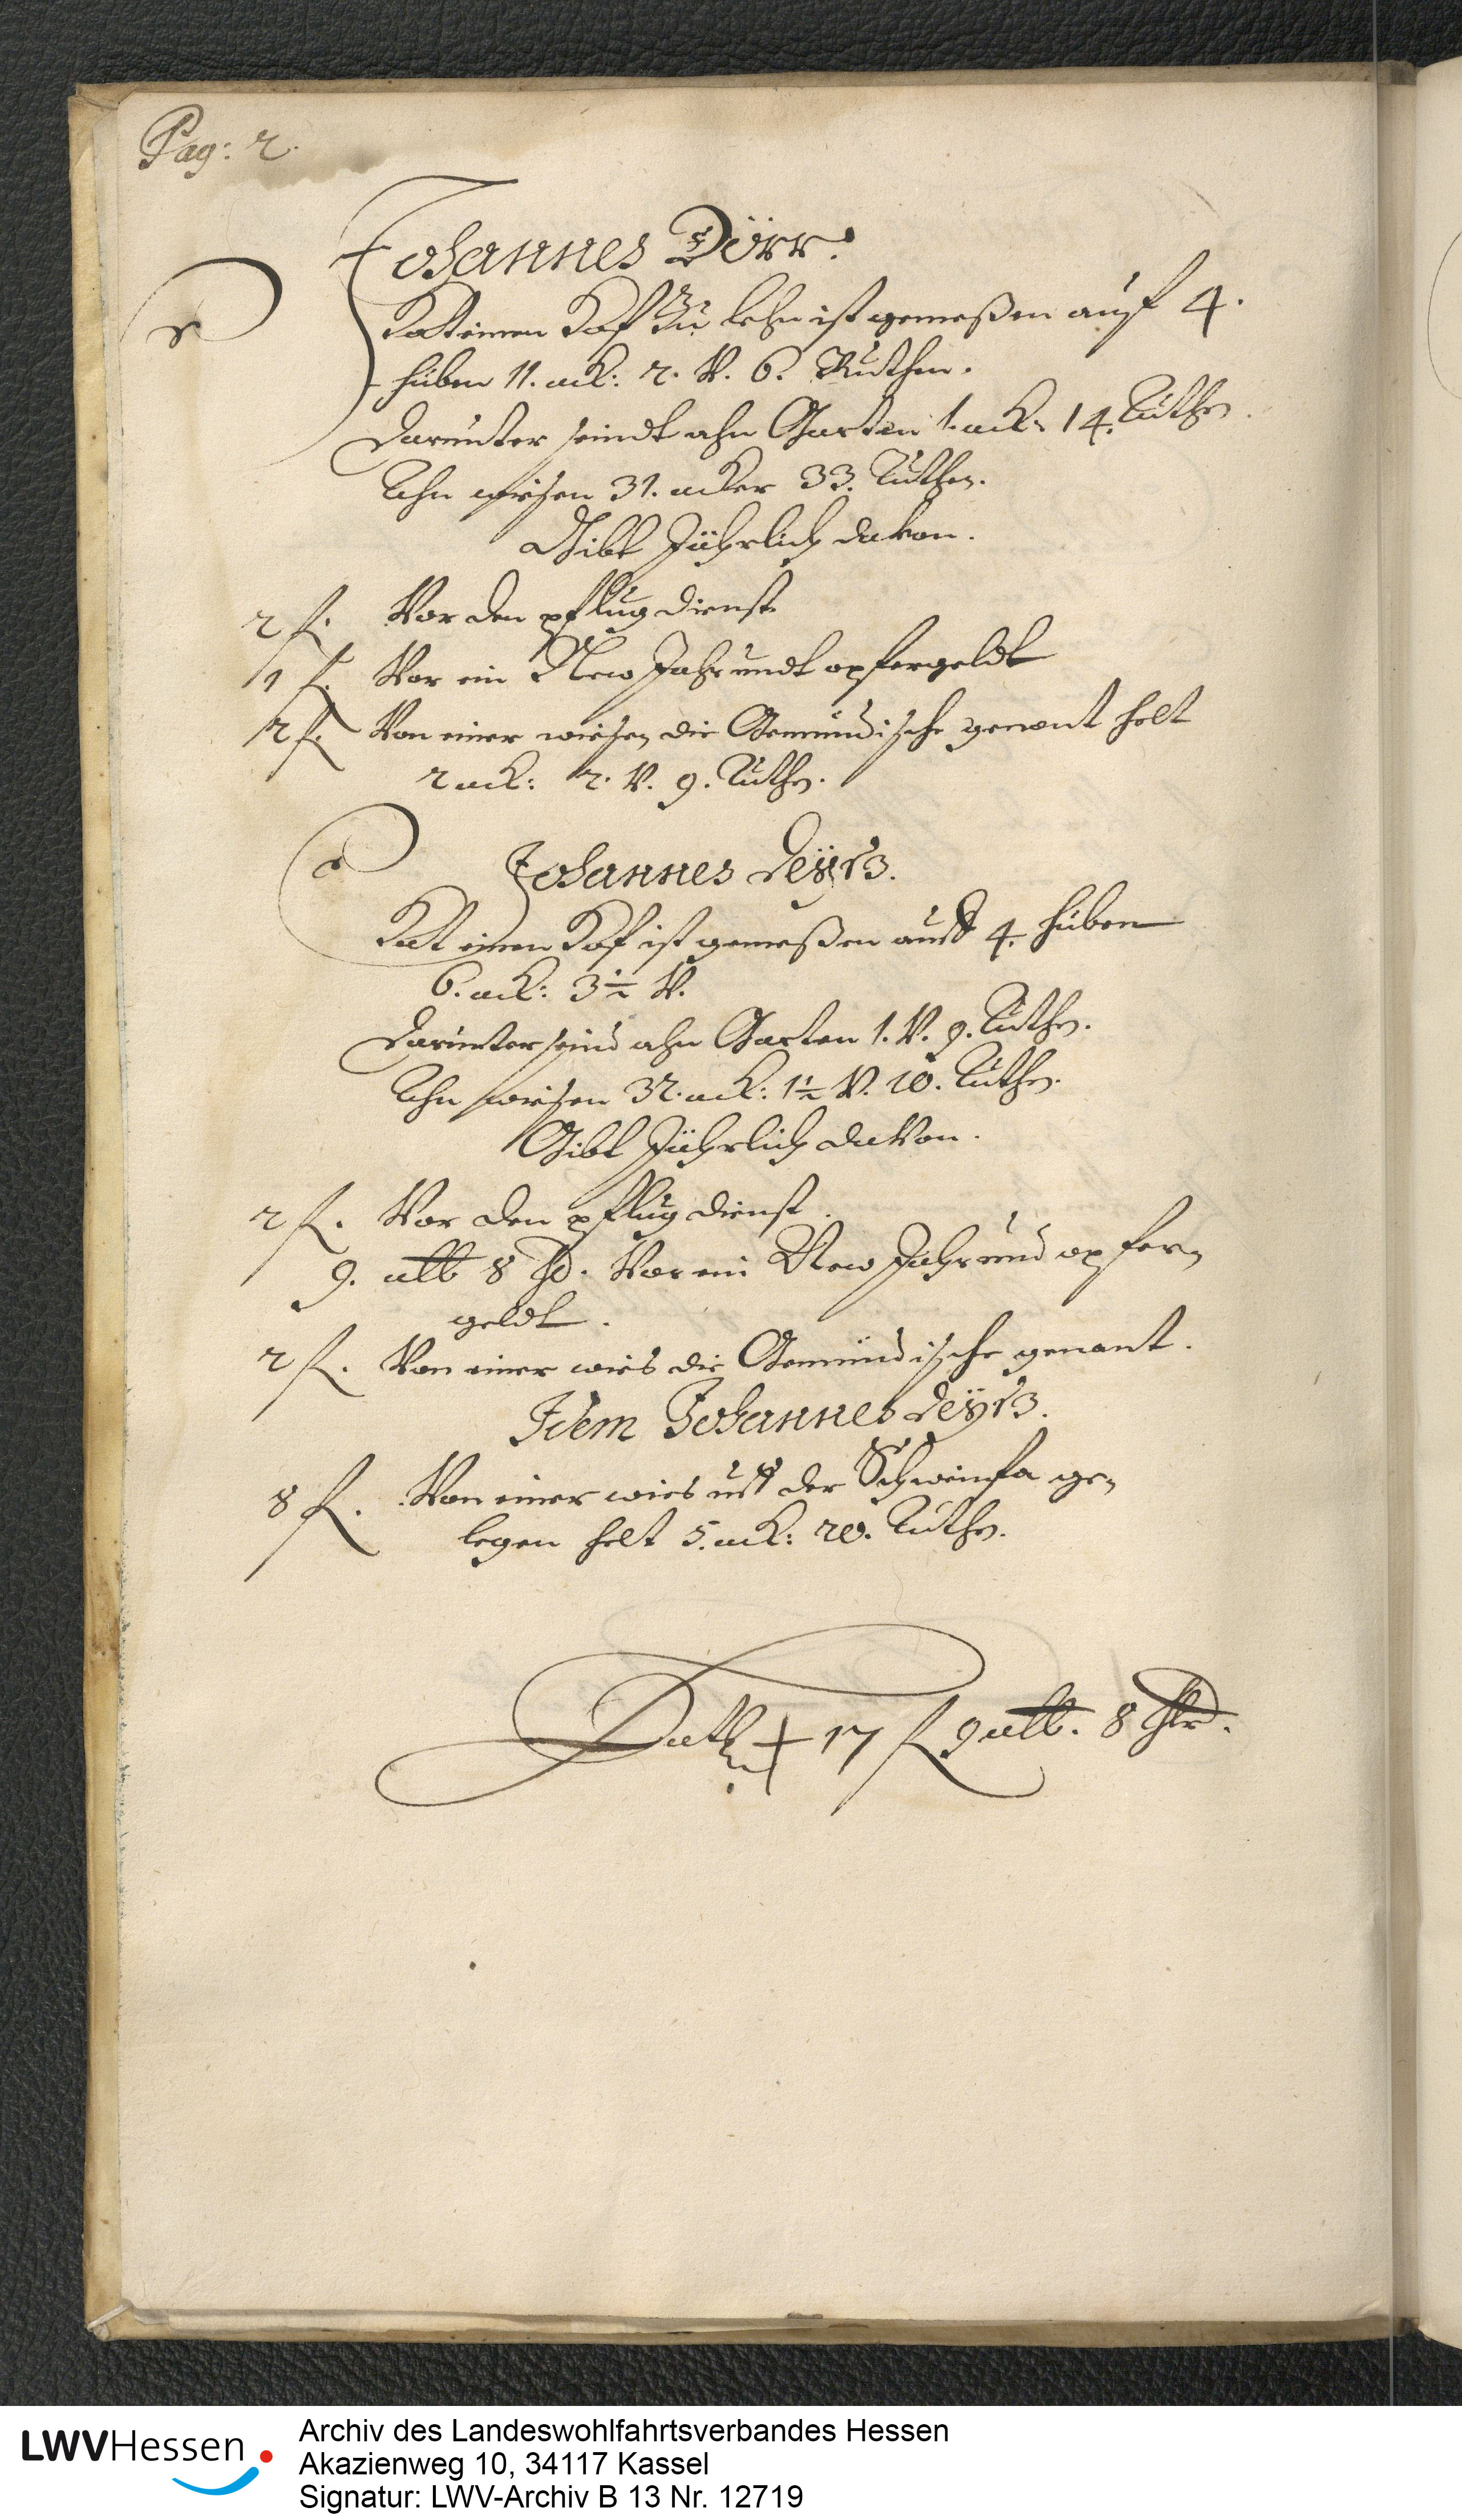 Pag: 2.
Johannes Dörr.
Hat einen Hof Zu lehn ist gemeßen auff 4.
huben 11. ack: 2. V. 6. Ruthen.
Darunter seindt ahn Garten 1. ack: 14. Ruthen.
Ahn wiesen 31. acker 33. Ruthen.
Gibt Jährlich davon.
2 fl. Vor den pflug dienst
1 fl. Vor ein New Jahr undt opfergeldt
2 fl. Von einer wiesen die Gemündische genant helt
2 ack: 2. V. 9. Ruthen.
Johannes
Hat einen Hof ist gemeßen auff 4. huben
6. ack: 3½ V.
Darunter seind ahn Garten 1. V. 9. Ruthen.
Ahn wiesen 32. ack: 1½ V. 10. Ruthen.
Gibt Jährlich davon.
2 fl. Vor den pflug dienst.
9. alb 8 hl. Vor ein New Jahr und opfer-
geldt.
2 fl. Von einer wies die Gemündische genant.
Idem Johannes
8 fl. Von einer wies uff der ge-
legen helt 5. ack: 20. Ruthen.
17 fl 9 alb. 8 hlr.
LWVHessen
Archiv des Landeswohlfahrtsverbandes Hessen
Akazienweg 10, 34117 Kassel
Signatur: LWV-Archiv B 13 Nr. 12719